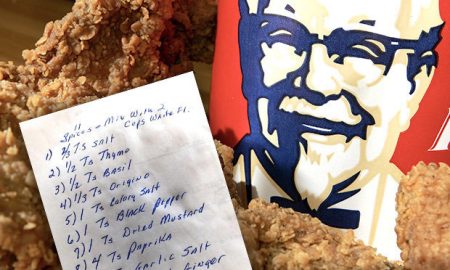 11
Spices - Mix With 2
Cups White Fl.
1) 2/3 Ts Salt
2) 1/2 Ts Thyme
3) 1/2 Ts Basil
4) 1/3 Ts Origino
5) 1 Ts Celery Salt
6) 1 Ts Black Pepper
7) 1 Ts Dried Mustard
8) 4 Ts Paprika
Garlic Salt
Ginger